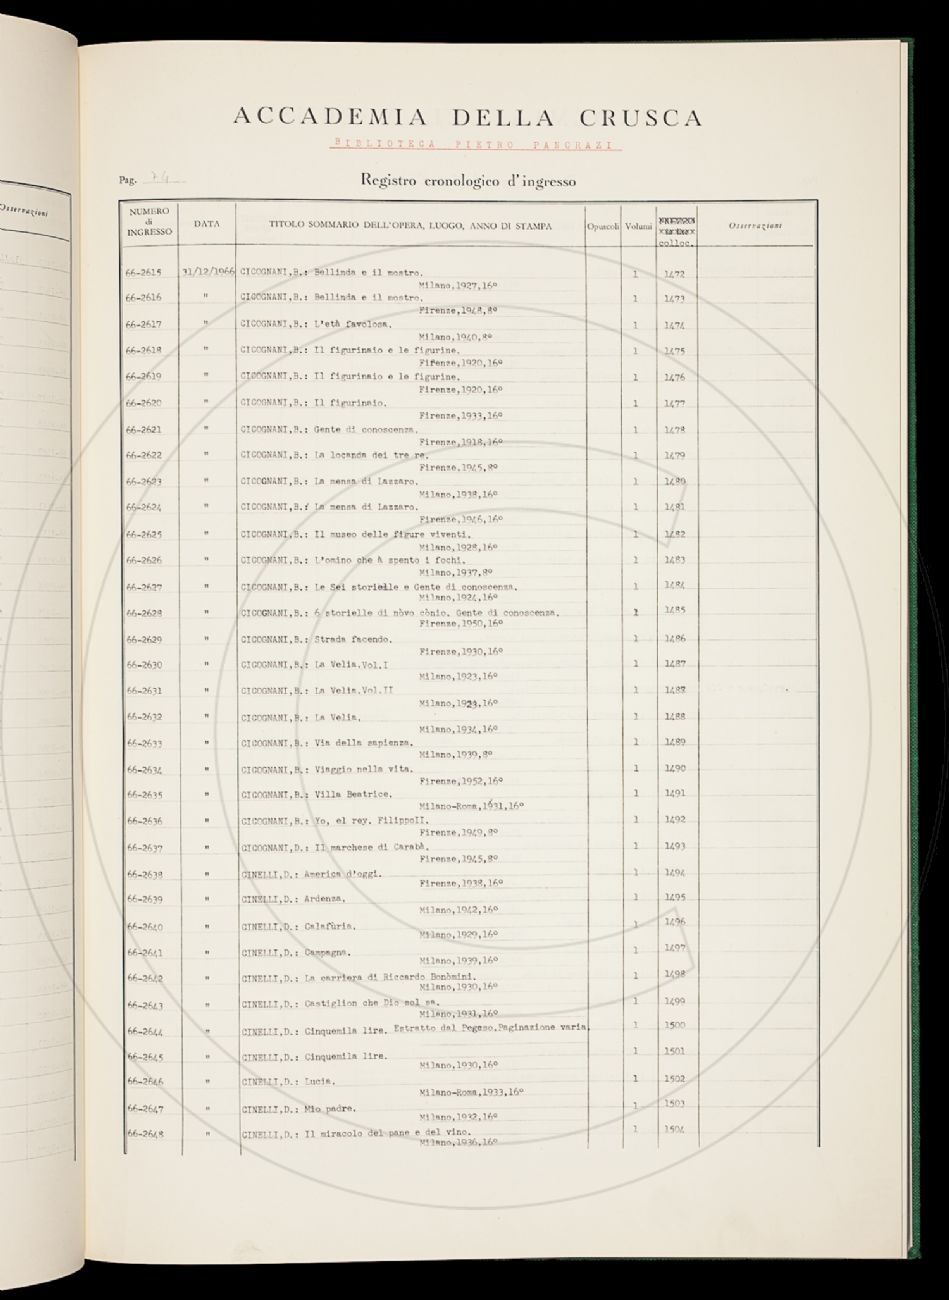 Osservazioni
ACCADEMIA DELLA CRUSCA
BIBLIOTECA PIETRO PANCRAZI
Pag. 74
Registro cronologico d'ingresso
NUMERO di INGRESSO DATA TITOLO SOMMARIO DELL'OPERA, LUOGO, ANNO DI STAMPA Opuscoli Volumi colloc. Osservazioni
66-2615 31/12/1966 CICOGNANI,B.: Bellinda e il mostro. 1 1472
Milano,1927,16º
66-2616 " CICOGNANI,B.: Bellinda e il mostro. 1 1473
Firenze,1948,8º
66-2617 " CICOGNANI,B.: L'età favolosa. 1 1474
Milano,1940,8º
66-2618 " CICOGNANI,B.: Il figurinaio e le figurine. 1 1475
Firenze,1920,16º
66-2619 " CICOGNANI,B.: Il figurinaio e le figurine. 1 1476
Firenze,1920,16º
66-2620 " CICOGNANI,B.: Il figurinaio. 1 1477
Firenze,1933,16º
66-2621 " CICOGNANI,B.: Gente di conoscenza. 1 1478
Firenze,1918,16º
66-2622 " CICOGNANI,B.: La locanda dei tre re. 1 1479
Firenze,1945,8º
66-2623 " CICOGNANI,B.: La mensa di Lazzaro. 1 1480
Milano,1938,16º
66-2624 " CICOGNANI,B.: La mensa di Lazzaro. 1 1481
Firenze,1946,16º
66-2625 " CICOGNANI,B.: Il museo delle figure viventi. 1 1482
Milano,1928,16º
66-2626 " CICOGNANI,B.: L'omino che à spento i fochi. 1 1483
Milano,1937,8º
66-2627 " CICOGNANI,B.: Le Sei storielle e Gente di conoscenza. 1 1484
Milano,1924,16º
66-2628 " CICOGNANI,B.: 6 storielle di nòvo cònio. Gente di conoscenza. 1 1485
Firenze,1950,16º
66-2629 " CICOGNANI,B.: Strada facendo. 1 1486
Firenze,1930,16º
66-2630 " CICOGNANI,B.: La Velia.Vol.I 1 1487
Milano,1923,16º
66-2631 " CICOGNANI,B.: La Velia.Vol.II 1 1487
Milano,1923,16º
66-2632 " CICOGNANI,B.: La Velia. 1 1488
Milano,1934,16º
66-2633 " CICOGNANI,B.: Via della sapienza. 1 1489
Milano,1939,8º
66-2634 " CICOGNANI,B.: Viaggio nella vita. 1 1490
Firenze,1952,16º
66-2635 " CICOGNANI,B.: Villa Beatrice. 1 1491
Milano-Roma,1931,16º
66-2636 " CICOGNANI,B.: Yo, el rey. FilippoII. 1 1492
Firenze,1949,8º
66-2637 " CICOGNANI,D.: Il marchese di Carabà. 1 1493
Firenze,1945,8º
66-2638 " CINELLI,D.: America d'oggi. 1 1494
Firenze,1938,16º
66-2639 " CINELLI,D.: Ardenza. 1 1495
Milano,1942,16º
66-2640 " CINELLI,D.: Calafùria. 1 1496
Milano,1929,16º
66-2641 " CINELLI,D.: Campagna. 1 1497
Milano,1939,16º
66-2642 " CINELLI,D.: La carriera di Riccardo Bonòmini. 1 1498
Milano,1930,16º
66-2643 " CINELLI,D.: Castiglion che Dio sol sa. 1 1499
Milano,1931,16º
66-2644 " CINELLI,D.: Cinquemila lire. Estratto dal Pegaso.Paginazione varia 1 1500
66-2645 " CINELLI,D.: Cinquemila lire. 1 1501
Milano,1930,16º
66-2646 " CINELLI,D.: Lucia. 1 1502
Milano-Roma,1933,16º
66-2647 " CINELLI,D.: Mio padre. 1 1503
Milano,1932,16º
66-2648 " CINELLI,D.: Il miracolo del pane e del vino. 1 1504
Milano,1936,16º